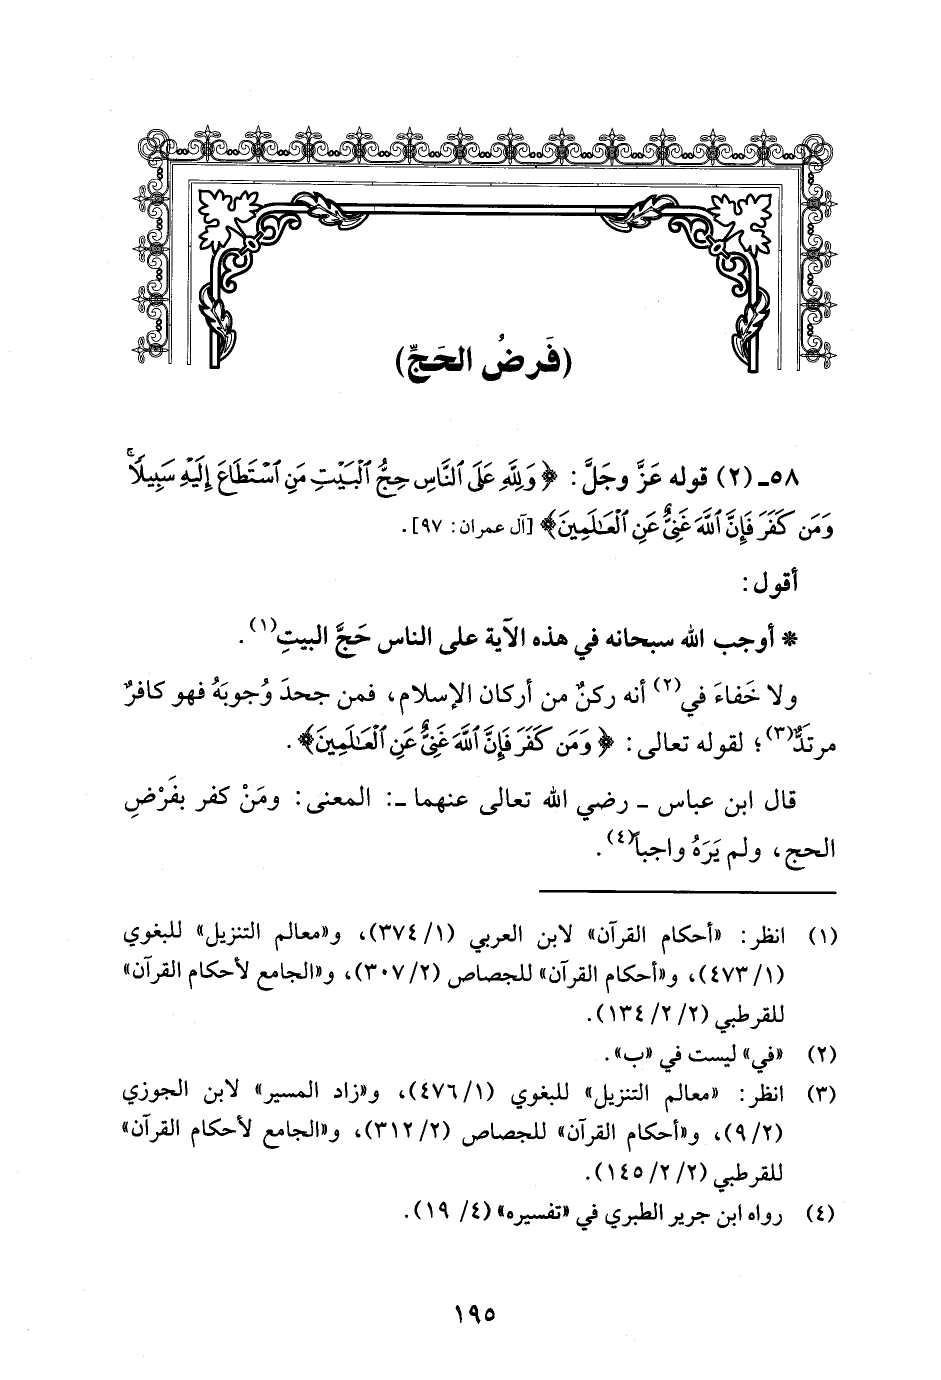 (فَرضُ الحَجِّ)
٥٨ـ (٢) قوله عَزَّ وجَلَّ: ﴿وَلِلَّهِ عَلَى ٱلنَّاسِ حِجُّ ٱلۡبَيۡتِ مَنِ ٱسۡتَطَاعَ إِلَيۡهِ سَبِيلٗاۚ
وَمَن كَفَرَ فَإِنَّ ٱللَّهَ غَنِيٌّ عَنِ ٱلۡعَٰلَمِينَ﴾ [آل عمران: ٩٧].
أقول:
* أوجب الله سبحانه في هذه الآية على الناس حَجَّ البيتِ(١).
ولا خَفاءَ في(٢) أنه ركنٌ من أركان الإسلام، فمن جحدَ وُجوبَهُ فهو كافرٌ
مرتدٌّ(٣)؛ لقوله تعالى: ﴿وَمَن كَفَرَ فَإِنَّ ٱللَّهَ غَنِيٌّ عَنِ ٱلۡعَٰلَمِينَ﴾.
قال ابن عباس ـ رضي الله تعالى عنهما ـ: المعنى: ومَنْ كفر بفَرْضِ
الحج، ولم يَرَهُ واجباً(٤).
(١) انظر: «أحكام القرآن» لابن العربي (١/ ٣٧٤)، و«معالم التنزيل» للبغوي
(١/ ٤٧٣)، و«أحكام القرآن» للجصاص (٢/ ٣٠٧)، و«الجامع لأحكام القرآن»
للقرطبي (٢/ ٢/ ١٣٤).
(٢) «في» ليست في «ب».
(٣) انظر: «معالم التنزيل» للبغوي (١/ ٤٧٦)، و«زاد المسير» لابن الجوزي
(٢/ ٩)، و«أحكام القرآن» للجصاص (٢/ ٣١٢)، و«الجامع لأحكام القرآن»
للقرطبي (٢/ ٢/ ١٤٥).
(٤) رواه ابن جرير الطبري في «تفسيره» (٤/ ١٩).
١٩٥